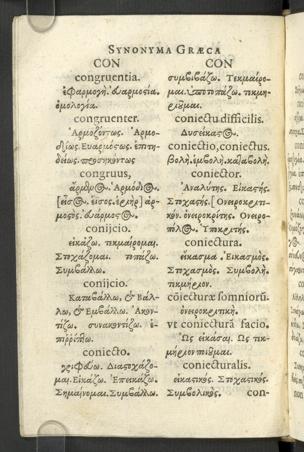 SYNONYMA GRÆCA
CON
congruentia.
ἐφαρμογὴ. ἁρμοσία.
ὁμολογία.
congruenter.
Ἁρμοζόντως. Ἁρμο-
δίως. Εὐαρμόστως. ἐπιτη-
δείως. προσηκόντως
congruus,
Ἁρμόδιος.
μοστὸς.
conijcio.
εἰκάζω. τεκμαίρομαι.
Στοχάζομαι. τοπάζω.
Συμβάλλω.
conijcio.
Καταβάλλω, & Βάλ-
λω, & Ἐμβάλλω. Ἀκον-
τίζω. συνακοντίζω. ἐ-
πιῤῥίπτω.
coniecto.
Διαστοχάζο-
μαι. Εἰκάζω. Ἐπεικάζω.
Σημαίνομαι. Συμβάλλω.
CON
συμβιβάζω. Τεκμαίρο-
μαι. τεκμη-
ριοῦμαι.
coniectu difficilis.
Δυσείκαστος.
coniectio, coniectus.
βολὴ. ἐμβολὴ. καταβολὴ.
coniector.
Ἀναλύτης. Εἰκαστὴς.
Στοχαστὴς. [Ὀνειροκριτι-
κὸν. ὀνειροκρίτης. Ὀνειρο-
πόλος. Ὑποκριτὴς.
coniectura.
εἴκασμα. Εἰκασμὸς.
Στοχασμὸς. Συμβολὴ.
τεκμήριον.
cõiecturæ somniorũ.
ὀνειροκριτικὴ.
vt coniecturã facio.
Ὡς εἰκάσαι. Ὡς τεκ-
μήριον ποιοῦμαι.
coniecturalis.
εἰκαστικὸς. Στοχαστικὸς.
Συμβολικὸς. con-